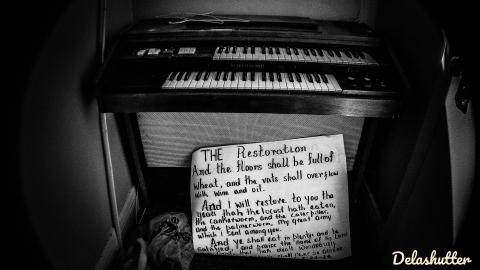 THE Restoration
And the floors shall be full of
wheat, and the vats shall overflow
with wine and oil.
And I will restore to you the
years that the locust hath eaten,
the cankerworm, and the caterpillar,
and the palmerworm, my great army
which I sent among you.
And ye shall eat in plenty and be
satisfied, and praise the name of
that hath dealt wondrously
Delashutter